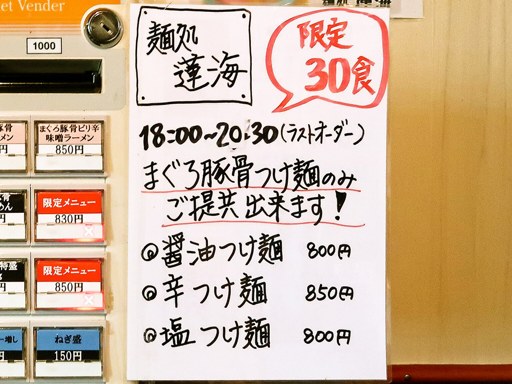 et Vender
1000
麺処
蓮海
限定
30食
18:00~20:30(ラストオーダー)
まぐろ豚骨つけ麺のみ
ご提共出来ます!
◎醤油つけ麺 800円
◎辛つけ麺 850円
◎塩つけ麺 800円
まぐろ豚骨ピリ辛
味噌ラーメン
850円
限定メニュー
830円
限定メニュー
850円
ねぎ盛
150円